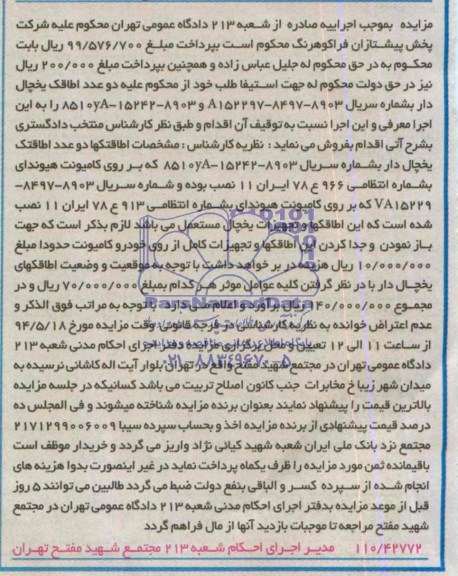 مزایده بموجب اجراییه صادره از شعبه ۲۱۳ دادگاه عمومی تهران محکوم علیه شرکت
پخش پیشتازان فراکوهرنگ محکوم است بپرداخت مبلغ ۹۹/۵۷۶/۷۰۰ ریال بابت
محکوم به در حق محکوم له جلیل عباس زاده و همچنین بپرداخت مبلغ ۲۰۰/۰۰۰ ریال
نیز در حق دولت محکوم له جهت استیفا طلب خود از محکوم علیه دو عدد اطاقک یخچال
دار بشماره سریال ۸۹۰۳-۸۴۹۷-A۱۵۲۲۹۷ و ۸۹۰۳-۱۵۲۴۲-۸۵۱۰yA را به این
اجرا معرفی و این اجرا نسبت به توقیف آن اقدام و طبق نظر کارشناس منتخب دادگستری
بشرح آتی اقدام بفروش می نماید : نظریه کارشناس : مشخصات اطاقکها دو عدد اطاقتک
یخچال دار بشماره سریال ۸۹۰۳-۱۵۲۴۲-۸۵۱۰yA که بر روی کامیونت هیوندای
بشماره انتظامی ۹۶۶ ع ۷۸ ایران ۱۱ نصب بوده و شماره سریال ۸۹۰۳-۸۴۹۷-
VA۱۵۲۲۹ که بر روی کامیونت هیوندای بشماره انتظامی ۹۱۳ ع ۷۸ ایران ۱۱ نصب
شده است که این اطاقکها و تجهیزات یخچال مستعمل می باشد لازم بذکر است که جهت
باز نمودن و جدا کردن این اطاقکها و تجهیزات کامل از روی خودرو کامیونت حدودا مبلغ
۱۰/۰۰۰/۰۰۰ ریال هزینه در بر خواهد داشت با توجه به موقعیت و وضعیت اطاقکهای
یخچال دار با در نظر گرفتن کلیه عوامل موثر هر کدام بمبلغ ۷۰/۰۰۰/۰۰۰ ریال و در
مجموع ۱۴۰/۰۰۰/۰۰۰ ریال برآورد و اعلام می دارد . با توجه به مراتب فوق الذکر و
عدم اعتراض خوانده به نظریه کارشناس در فرجه قانونی وقت مزایده مورخ ۹۴/۵/۱۸
از ساعت ۱۱ الی ۱۲ تعیین و محل برگزاری مزایده دفتر اجرای احکام مدنی شعبه ۲۱۳
دادگاه عمومی تهران در مجتمع شهید مفتح واقع در تهران بلوار آیت اله کاشانی نرسیده به
میدان شهر زیبا خ مخابرات جنب کانون اصلاح تربیت می باشد کسانیکه در جلسه مزایده
بالاترین قیمت را پیشنهاد نمایند بعنوان برنده مزایده شناخته میشوند و فی المجلس ده
درصد قیمت پیشنهادی از برنده مزایده اخذ و بحساب سپرده سیبا ۲۱۷۱۲۹۹۰۰۶۰۰۹
مجتمع نزد بانک ملی ایران شعبه شهید کیانی نژاد واریز می گردد و خریدار موظف است
باقیمانده ثمن مورد مزایده را ظرف یکماه پرداخت نماید در غیر اینصورت بدوا هزینه های
انجام شده از سپرده کسر و الباقی بنفع دولت ضبط می گردد طالبین می توانند ۵ روز
قبل از موعد مزایده بدفتر اجرای احکام مدنی شعبه ۲۱۳ دادگاه عمومی تهران در مجتمع
شهید مفتح مراجعه تا موجبات بازدید آنها از مال فراهم گردد
۱۱۰/۴۲۷۷۲ مدیر اجرای احکام شعبه ۲۱۳ مجتمع شهید مفتح تهران
۰۲۱-۸۸۳۴۹۶۷۰-۵